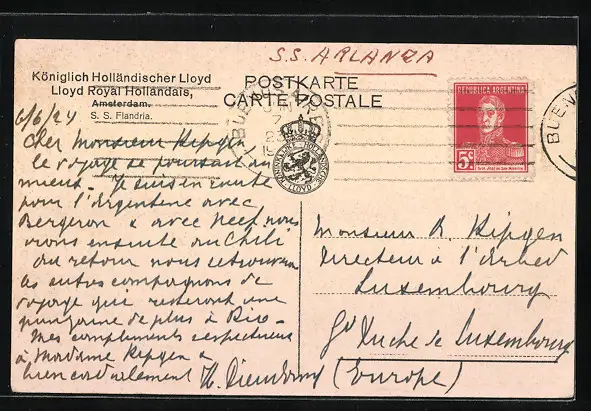 S.S. ARLANZA
Königlich Holländischer Lloyd
Lloyd Royal Hollandais,
Amsterdam.
S. S. Flandria.
POSTKARTE
CARTE POSTALE
REPUBLICA ARGENTINA
5c
BUENO
6/6/24
Cher Monsieur Kipgen
le voyage se poursuit au
mieux. Je suis en route
pour l'Argentine avec
Bergeron & avec Neef, nous
irons ensuite au Chili
Au retour nous retrouverons
les autres compagnons de
voyage qui resteront une
quinzaine de plus à Rio.
Mes compliments respectueux
à Madame Kipgen &
bien cordialement
Monsieur R. Kipgen
Directeur à l'Arbed
Luxembourg
Gd Duché de Luxembourg
(Europe)